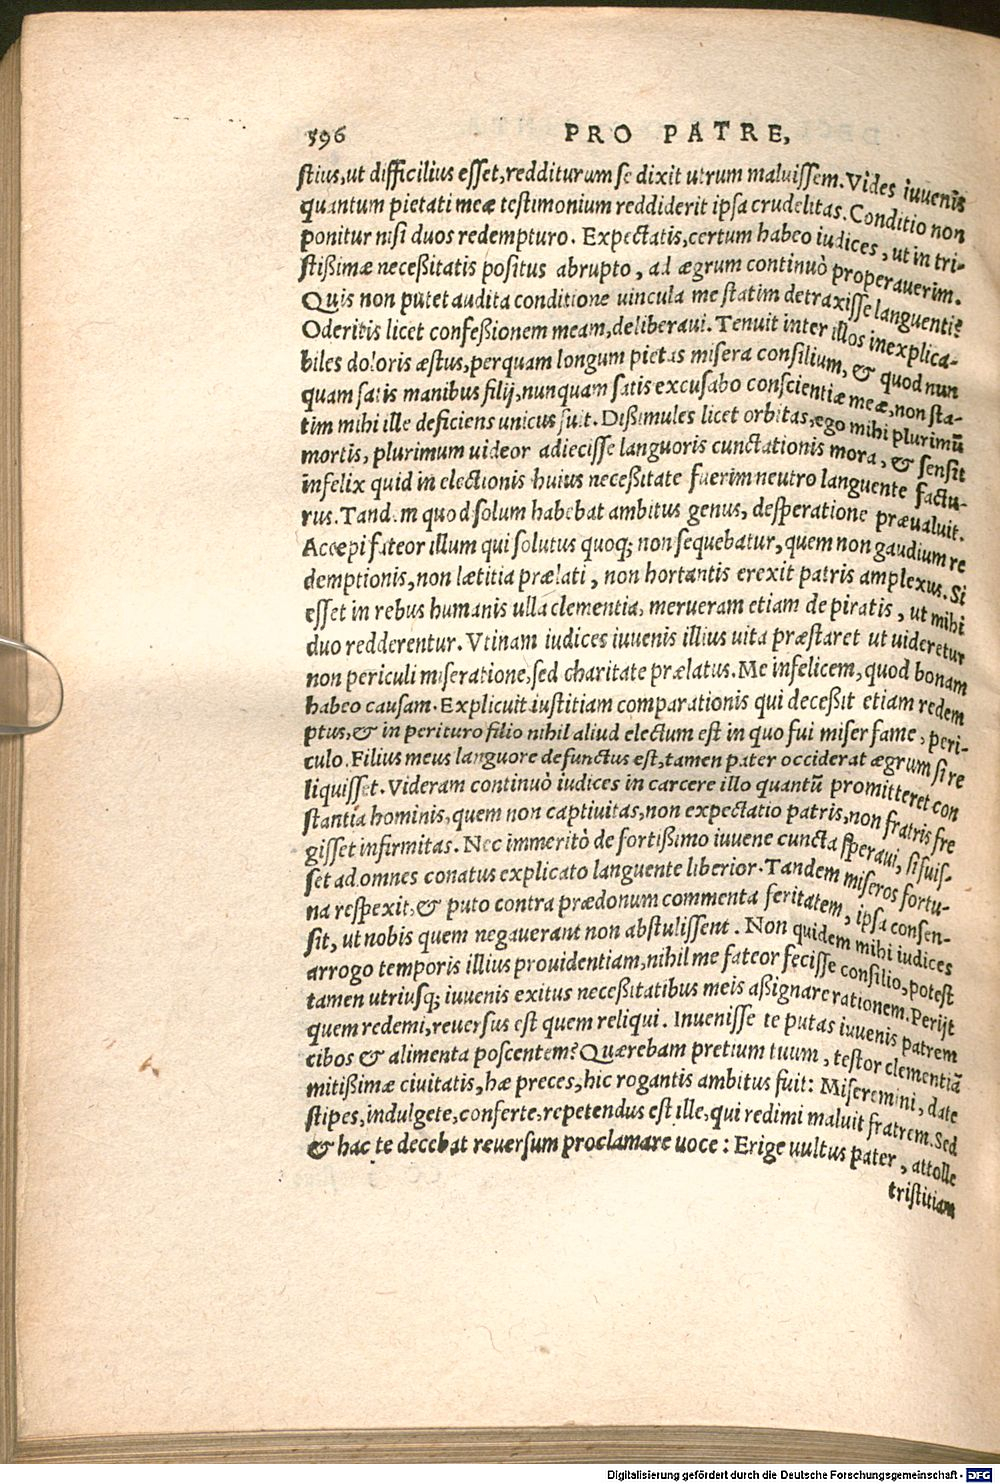 596 PRO PATRE,
stius, ut difficilius esset, redditurum se dixit utrum maluissem. Vides iuuenis
quantum pietati meæ testimonium reddiderit ipsa crudelitas. Conditio non
ponitur nisi duos redempturo. Expectatis, certum habeo iudices, ut in tri-
stißimæ neceßitatis positus abrupto, ad ægrum continuò properauerim.
Quis non putet audita conditione uincula me statim detraxisse languenti?
Oderitis licet confeßionem meam, deliberaui. Tenuit inter illos inexplica-
biles doloris æstus, perquam longum pietas misera consilium, & quod nun
quam satis manibus filij, nunquam satis excusabo conscientiæ meæ, non sta-
tim mihi ille deficiens unicus fuit. Dißimules licet orbitas, ego mihi plurimũ
mortis, plurimum uideor adiecisse languoris cunctationis mora, & sensit
infelix quid in electionis huius neceßitate fuerim neutro languente factu-
rus. Tandem quod solum habebat ambitus genus, desperatione præualuit.
Accepi fateor illum qui solutus quoq; non sequebatur, quem non gaudium re
demptionis, non lætitia prælati, non hortantis erexit patris amplexus. Si
esset in rebus humanis ulla clementia, merueram etiam de piratis, ut mihi
duo redderentur. Vtinam iudices iuuenis illius uita præstaret ut uideretur
non periculi miseratione, sed charitate prælatus. Me infelicem, quod bonam
habeo causam. Explicuit iustitiam comparationis qui deceßit etiam redem
ptus, & in perituro filio nihil aliud electum est in quo fui miser fame, peri-
culo. Filius meus languore defunctus est, tamen pater occiderat ægrum si re
liquisset. Videram continuò iudices in carcere illo quantũ promitteret con
stantia hominis, quem non captiuitas, non expectatio patris, non fratris fre
gisset infirmitas. Nec immeritò de fortißimo iuuene cuncta speraui, si fuis-
set ad omnes conatus explicato languente liberior. Tandem miseros fortu-
na respexit, & puto contra prædonum commenta feritatem, ipsa consen-
sit, ut nobis quem negauerant non abstulissent. Non quidem mihi iudices
arrogo temporis illius prouidentiam, nihil me fateor fecisse consilio, potest
tamen utriusq; iuuenis exitus neceßitatibus meis aßignare rationem. Perijt
quem redemi, reuersus est quem reliqui. Inuenisse te putas iuuenis patrem
cibos & alimenta poscentem? Quærebam pretium tuum, testor clementiã
mitißimæ ciuitatis, hæ preces, hic rogantis ambitus fuit: Miseremini, date
stipes, indulgete, conferte, repetendus est ille, qui redimi maluit fratrem. Sed
& hac te decebat reuersum proclamare uoce: Erige uultus pater, attolle
tristitiam
Digitalisierung gefördert durch die Deutsche Forschungsgemeinschaft - DFG